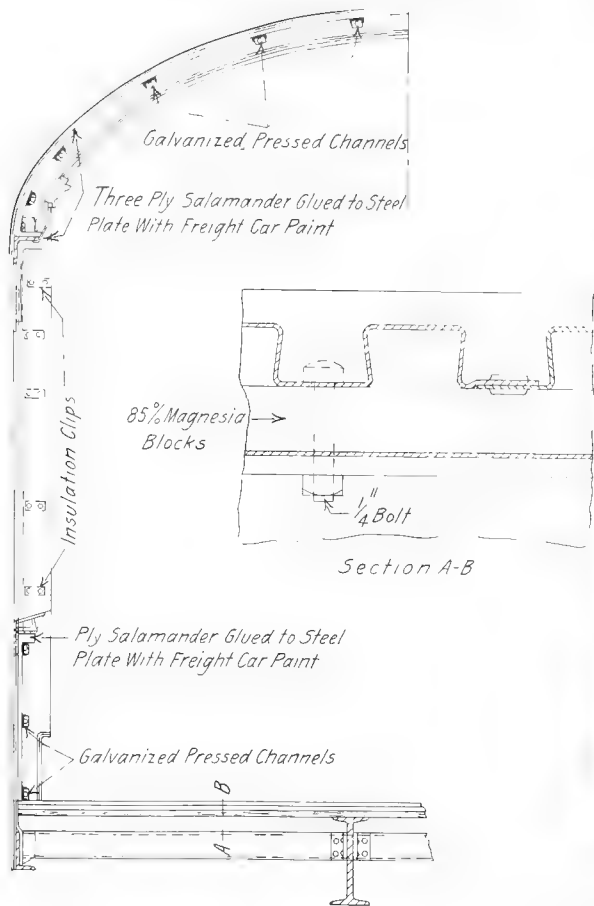 Galvanized Pressed Channels
Three Ply Salamander Glued to Steel
Plate With Freight Car Paint
Insulation Clips
85% Magnesia
Blocks
1/4" Bolt
Section A-B
Ply Salamander Glued to Steel
Plate With Freight Car Paint
Galvanized Pressed Channels
B
A